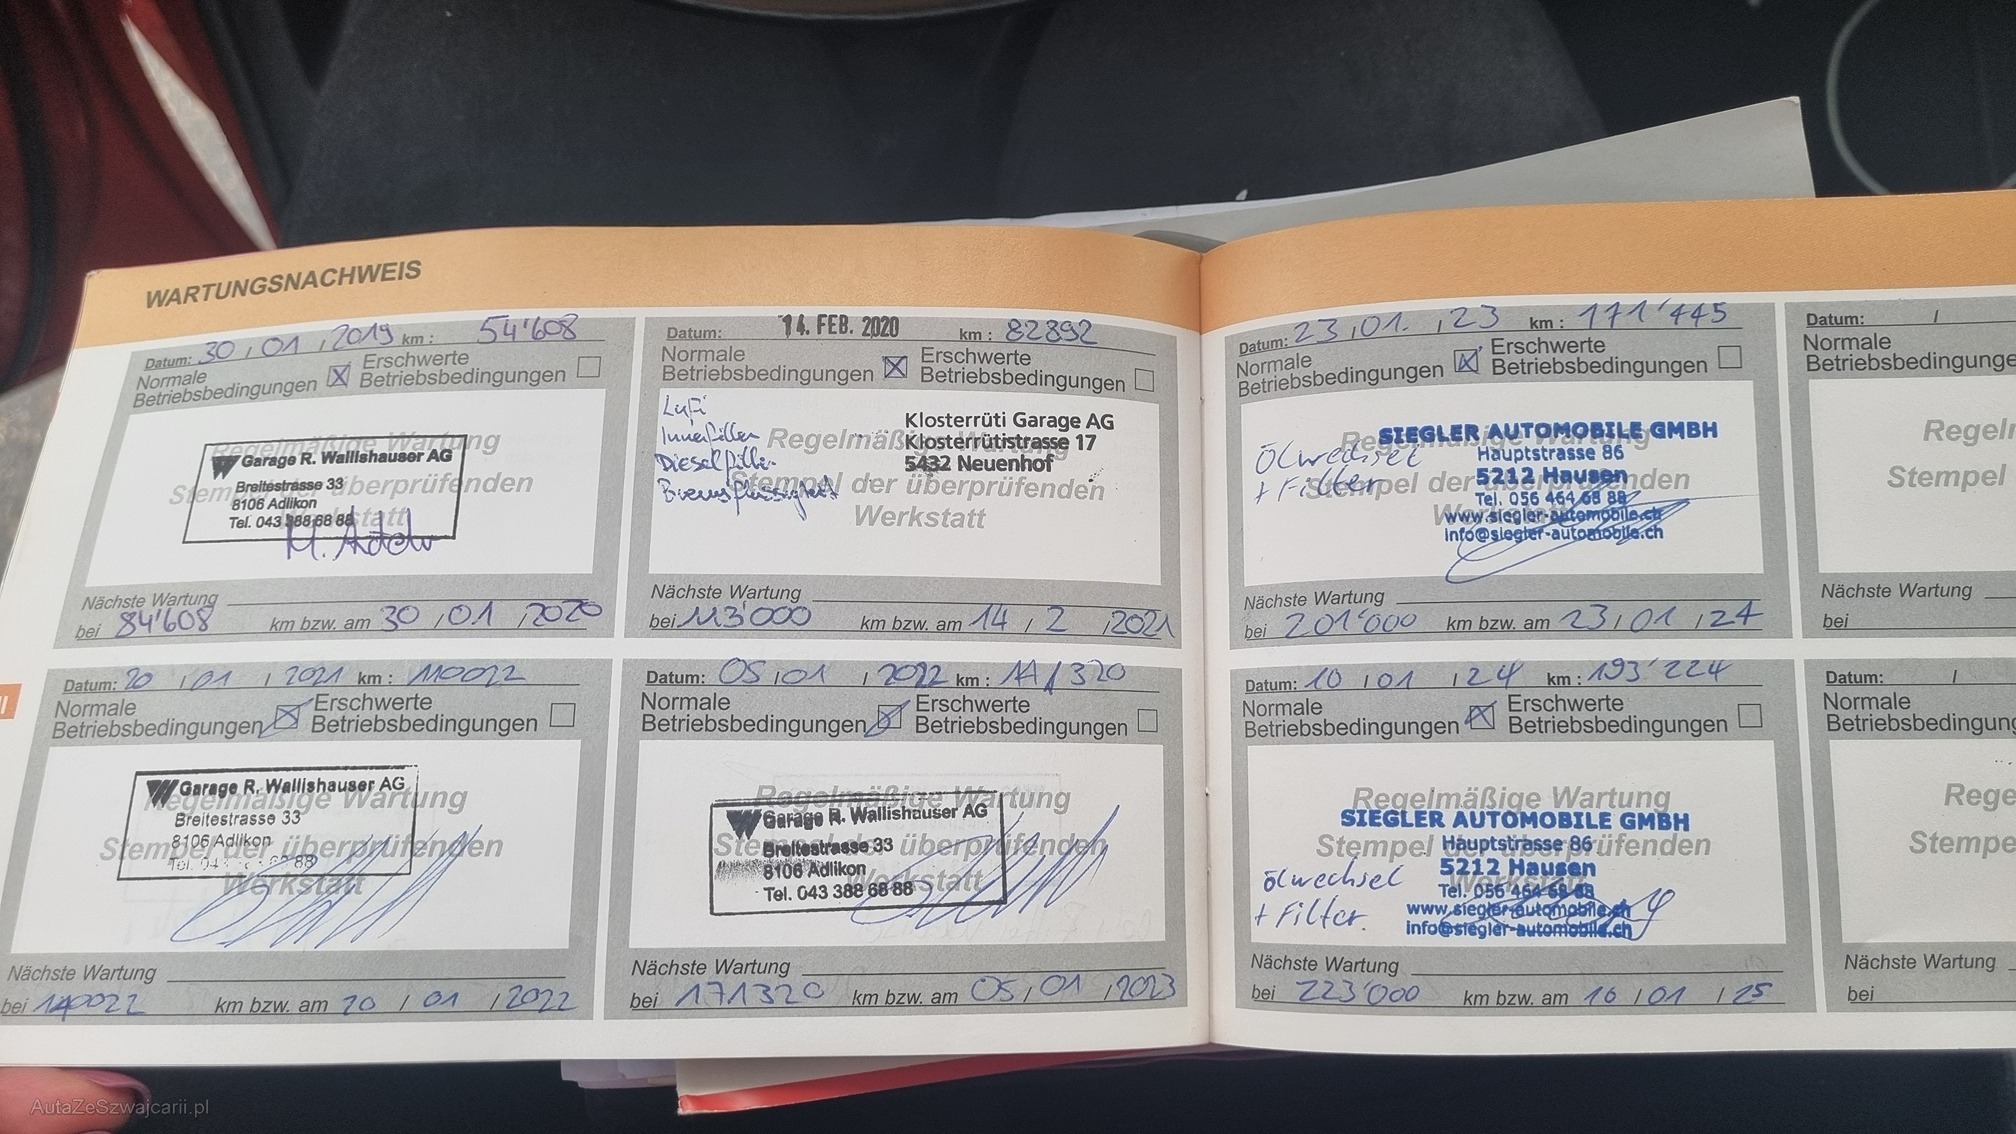 WARTUNGSNACHWEIS
Datum: 30 / 01 / 2019 km: 54'608
Normale Betriebsbedingungen ☒ Erschwerte Betriebsbedingungen ☐
Regelmäßige Wartung
Stempel der überprüfenden
Werkstatt
Garage R. Wallishauser AG
Breitestrasse 33
8106 Adlikon
Tel. 043 388 68 88
Nächste Wartung
bei 84'608 km bzw. am 30 / 01 / 2020
Datum: 14. FEB. 2020 km: 82892
Normale Betriebsbedingungen ☒ Erschwerte Betriebsbedingungen ☐
Lufi
Innenfilter
Dieselfilter
Bremsflüssigkeit
Regelmäßige Wartung
Stempel der überprüfenden
Werkstatt
Klosterrüti Garage AG
Klosterrütistrasse 17
5432 Neuenhof
Nächste Wartung
bei 113'000 km bzw. am 14 / 2 / 2021
Datum: 20 / 01 / 2021 km: 110022
Normale Betriebsbedingungen ☒ Erschwerte Betriebsbedingungen ☐
Regelmäßige Wartung
Stempel der überprüfenden
Werkstatt
Garage R. Wallishauser AG
Breitestrasse 33
8106 Adlikon
Tel. 04 88
Nächste Wartung
bei 140022 km bzw. am 20 / 01 / 2022
Datum: 05 / 01 / 2022 km:
Normale Betriebsbedingungen ☒ Erschwerte Betriebsbedingungen ☐
Regelmäßige Wartung
Stempel der überprüfenden
Werkstatt
Garage R. Wallishauser AG
Breitestrasse 33
8106 Adlikon
Tel. 043 388 68 88
Nächste Wartung
bei 171320 km bzw. am 05 / 01 / 2023
Datum: 23 / 01. / 23 km: 171'445
Normale Betriebsbedingungen ☒ Erschwerte Betriebsbedingungen ☐
Ölwechsel
+ Filter
Regelmäßige Wartung
Stempel der überprüfenden
SIEGLER AUTOMOBILE GMBH
Hauptstrasse 86
5212 Hausen
Tel. 056 464 68 88
www.siegler-automobile.ch
info@siegler-automobile.ch
Nächste Wartung
bei 201'000 km bzw. am 23 / 01 / 24
Datum: 10 / 01 / 24 km: 193'224
Normale Betriebsbedingungen ☒ Erschwerte Betriebsbedingungen ☐
Regelmäßige Wartung
Stempel der überprüfenden
Werkstatt
SIEGLER AUTOMOBILE GMBH
Hauptstrasse 86
5212 Hausen
Tel. 056 464 68 88
www.siegler-automobile.ch
info@siegler-automobile.ch
Ölwechsel
+ Filter.
Nächste Wartung
bei 223'000 km bzw. am 10 / 01 / 25
Datum: /
Normale
Betriebsbedingunge
Regelm
Stempel
Nächste Wartung
bei
Datum: /
Normale
Betriebsbedingung
Rege
Stempe
Nächste Wartung
bei
AutaZeSzwajcarii.pl